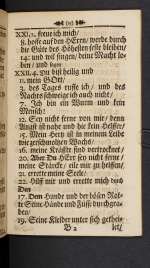 ( 19 )
XXI.2. freue ich mich/
8. hoffe auf den HErrn/ werde durch
die Güte des Höhesten feste bleiben/
14. und wil singen/ deine Macht lo-
ben/ und sagen
XXII.4. Du bist heilig und
11. mein GOtt/
3. des Tages ruffe ich/ und des
Nachtes schweige ich auch nicht/
7. Ich bin ein Wurm und kein
Mensch:
12. Sey nicht ferne von mir/ denn
Angst ist nahe und die kein Helffer
15. Mein Hertz ist in meinem Leibe
wie geschmoltzen Wachs/
16. meine Kräffte sind vertrocknet/
20. Aber Du HErr sey nicht ferne/
meine Stärcke/ eile mir zu helffen/
21. errette meine Seele/
22. Hilff mir und errette mich
Den
17. Denn Hunde und der bösen Rot-
te Seine Hände und Füsse durchgra-
ben/
19. Seine Kleider unter sich gethei-
B 2 let/